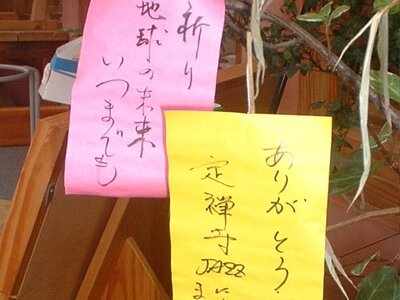 祈り
地球の未来
いつまでも
ありがとう
定禅寺
JAZZ